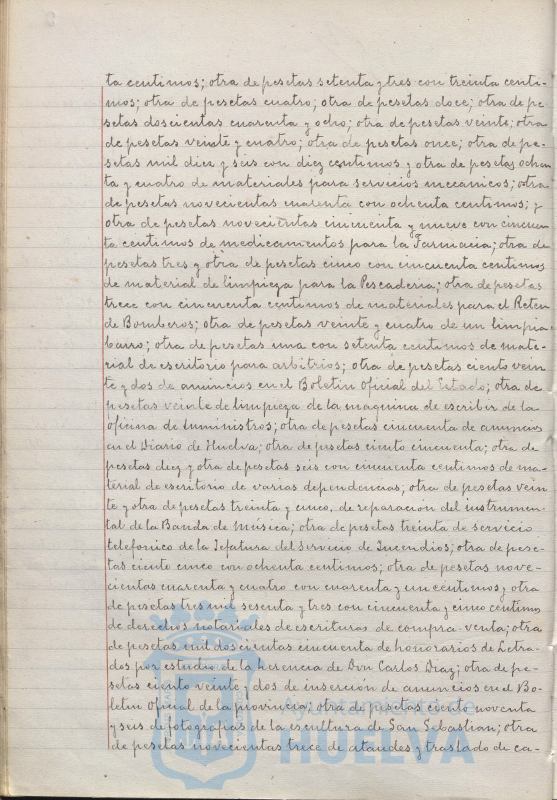 ta centimos; otra de pesetas setenta y tres con treinta centi-
mos; otra de pesetas cuatro; otra de pesetas doce; otra de pe-
setas doscientas cuarenta y ocho; otra de pesetas veinte; otra
de pesetas veinte y cuatro; otra de pesetas once; otra de pe-
setas mil diez y seis con diez centimos y otra de pesetas ochen
ta y cuatro de materiales para servicios mecanicos; otra
de pesetas novecientas cuarenta con ochenta centimos; y
otra de pesetas novecientas cincuenta y nueve con cincuen
ta centimos de medicamentos para la Farmacia; otra de
pesetas tres y otra de pesetas cinco con cincuenta centimos
de material de limpieza para la Pescaderia; otra de pesetas
trece con cincuenta centimos de materiales para el Reten
de Bomberos; otra de pesetas veinte y cuatro de un limpia
barro; otra de pesetas una con setenta centimos de mate-
rial de escritorio para arbitrios; otra de pesetas ciento vein
te y dos de anuncios en el Boletin Oficial del Estado; otra de
pesetas veinte de limpieza de la maquina de escribir de la
oficina de suministros; otra de pesetas cincuenta de anuncios
en el Diario de Huelva; otra de pesetas ciento cincuenta; otra de
pesetas diez y otra de pesetas seis con cincuenta centimos de ma-
terial de escritorio de varias dependencias; otra de pesetas vein
te y otra de pesetas treinta y cinco, de reparacion del instrumen-
tal de la Banda de Música; otra de pesetas treinta de servicio
telefonico de la Jefatura del Servicio de Incendios; otra de pese-
tas ciento cinco con ochenta centimos; otra de pesetas nove-
cientas cuarenta y cuatro con cuarenta y un centimos y otra
de pesetas tres mil sesenta y tres con cincuenta y cinco centimos
de derechos notariales de escrituras de compra-venta; otra
de pesetas mil doscientas cincuenta de honorarios de Letra-
dos por estudio de la herencia de Don Carlos Diaz; otra de pe-
setas ciento veinte y dos de inserción de anuncios en el Bo-
letin Oficial de la provincia; otra de pesetas ciento noventa
y seis de fotografias de la escultura de San Sebastian; otra
de pesetas novecientas trece de ataudes y traslado de ca-
Ayuntamiento de
HUELVA